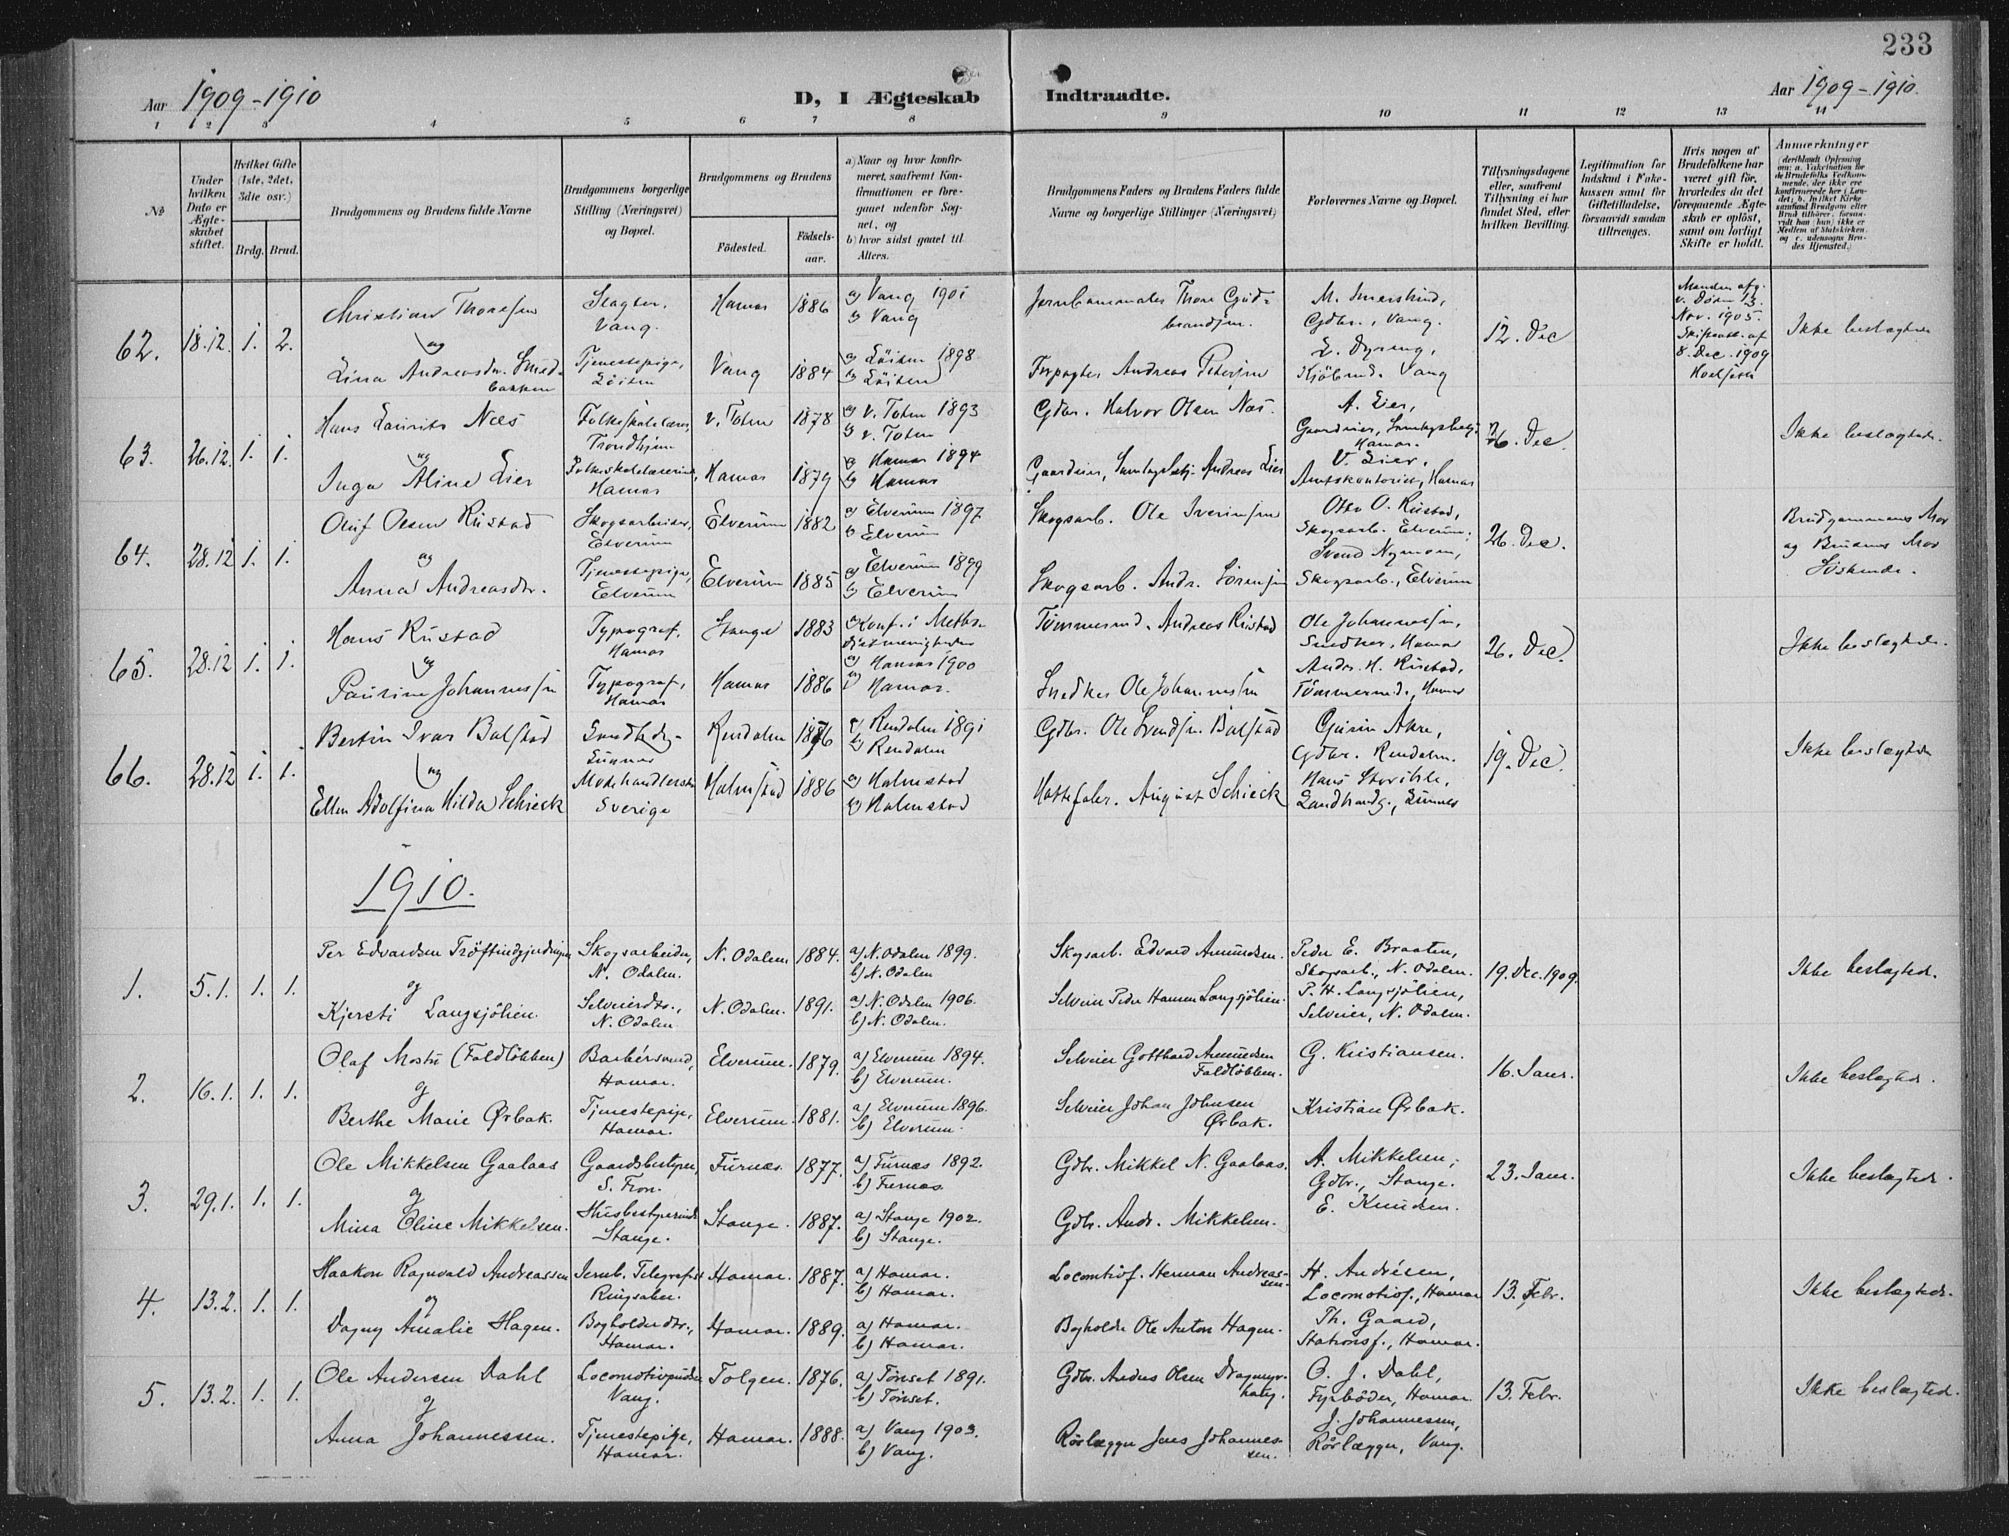 233
Aar 1909-1910
D, I Ægteskab Indtraadte.
Aar 1909-1910.
1 2 3 4 5 6 7 8 9 10 11 12 13 14
No
Under hvilken Dato er Ægteskabet stiftet.
Hvilket Gifte (1ste, 2det, 3die osv.)
Brdg. Brud.
Brudgommens og Brudens fulde Navne
Brudgommens borgerlige Stilling (Næringsvei) og Bopæl.
Brudgommens og Brudens
Fødested.
Fødselsaar.
a) Naar og hvor konfirmeret, saafremt Konfirmationen er foregaaet udenfor Sognet, og
b) hvor sidst gaaet til Alters.
Brudgommens Faders og Brudens Faders fulde Navne og borgerlige Stillinger (Næringsvei)
Forlovernes Navne og Bopæl.
Tillysningsdagene eller, saafremt Tillysning ei har fundet Sted, efter hvilken Bevilling.
Legitimation for Indskud i Enkekassen samt for Giftetilladelse, forsaavidt saadan tiltrænges.
Hvis nogen af Brudefolkene har været gift før, hvorledes da det foregaaende Ægteskab er opløst, samt om lovligt Skifte er holdt.
Anmærkninger
62. 18.12. 1. 2.
Christian Thoresen
og
Lina Andreasdr. Smedbakken
Slagter, Vang.
Tjenestepige, Löiten
Hamar 1886
Vang 1884
a) Vang 1901
b) Vang
a) Löiten 1898
b) Löiten
Thore Gudbrandsen.
Forpagter Andreas Petersen
Gdbr., Vang.
Kjöbmd. Vang
12. Dec
Manden afg. v. Døden 13. Nov. 1905.
8. Dec. 1909
Ikke beslægtede
63. 26.12. 1. 1.
Hans Laurits Næs
og
Inga Aline Lier
Folkeskolelærer, Trondhjem
Folkeskolelærerinde, Hamar
V. Toten 1878
Hamar 1879
a) V. Toten 1893
b) V. Toten
a) Hamar 1894
b) Hamar
Gdbr. Halvor Olsen Næs.
Gaardeier, Andreas Lier
A. Lier,
Gaardeier, Hamar.
V. Lier,
Amtskontorist, Hamar
26. Dec
Ikke beslægtede.
64. 28.12 1. 1.
Oluf Olsen Rustad
og
Anna Andreasdr.
Skogsarbeider, Elverum
Tjenestepige, Elverum
Elverum 1882
Elverum 1885
a) Elverum 1897
b) Elverum
a) Elverum 1899
b) Elverum
Skogsarb. Ole Iverensen
Skogsarb. Andr. Sörensen
Otto O. Rustad,
Skogsarb. Elverum.
Svend Nyma,
Skogsarb., Elverum
26. Dec.
Brudgommens Mor og Brudens Mor Söskende.
65. 28.12 1. 1.
Hans Rustad
og
Pauline Johannessen
Typograf, Hamar
Typograf, Hamar
Stange 1883
Hamar 1886
a) Konf. i Methodistmenigheden
a) Hamar 1900
b) Hamar.
Tömmermd. Andreas Rustad
Snedker Ole Johannessen
Ole Johannessen,
Snedker, Hamar
Andr. H. Rustad,
Tömmermd., Hamar
26. Dec.
Ikke beslægtede.
66. 28.12 1. 1.
Bertin Ivar Balstad
og
Ellen Adolfina Hilda Schieck
Landhdlr. Sunner
Modehandlerske Sverige
Rendalen 1876
Halmstad 1886
a) Rendalen 1891
b) Rendalen
a) Halmstad
b) Halmstad
Gdbr. Ole Svendsen Balstad
Hattefabr. August Schieck
Gdbr. Rendalen.
Hans Storihle,
Landhandl., Sunner
19. Dec.
Ikke beslægtede
1910.
1. 5.1. 1. 1.
Per Edvardsen
og
Kjersti Langsjölien.
Skogsarbeider, N. Odalen.
Selveierdtr., N. Odalen.
N. Odalen 1884.
N. Odalen. 1891.
a) N. Odalen 1899.
b) N. Odalen
a) N. Odalen 1906.
b) N. Odalen.
Skogsarb. Edvard Amundsen.
Selveier Peder Hansen Langsjölien.
Peder E. Braaten,
Skogsarb., N. Odalen.
P. H. Langsjölien,
Selveier, N. Odalen.
19. Dec. 1909.
Ikke beslægted.
2. 16.1. 1. 1.
Olaf Mostü (Foldlöbben)
og
Berthe Marie Ørbak.
Barbersvend, Hamar.
Tjenestepige, Hamar.
Elverum. 1879.
Elverum. 1881.
a) Elverum 1894.
b) Elverum.
a) Elverum 1896.
b) Elverum.
Selveier Gotthard Amundsen Foldlöbben.
Selveier Johan Johnsen Ørbak.
G. Kristiansen.
Kristian Ørbak.
16. Janr.
Ikke beslægted.
3. 29.1. 1. 1.
Ole Mikkelsen Gaalaas
og
Mina Oline Mikkelsen.
Gaardsbestyrer, S. Fron.
Husbestyrerinde Stange.
Furnæs. 1877.
Stange. 1887.
a) Furnæs 1892.
b) Furnæs
a) Stange 1902.
b) Stange.
Gdbr. Mikkel N. Gaalaas.
Gdbr. Andr. Mikkelsen.
A. Mikkelsen,
Gdbr., Stange.
E. Knudsen.
23. Janr.
Ikke beslægtede.
4. 13.2. 1. 1.
Haakon Ragnvald Andreassen
og
Dagny Amalie Hagen.
Jernb. Telegrafist Ringsaker.
Bogholderdtr., Hamar.
Hamar. 1887.
Hamar. 1889.
a) Hamar.
b) Hamar.
a) Hamar.
b) Hamar.
Locomotivf. Herman Andreassen.
Bogholder Ole Anton Hagen.
H. Andrésen,
Locomotivf., Hamar
Th. Gaard,
Stationsf., Hamar.
13. Febr.
Ikke beslægtede.
5. 13.2. 1. 1.
Ole Andersen Dahl
og
Anna Johannessen.
Locomotivpudser Vang.
Tjenestepige, Hamar.
Tolgen. 1876.
Hamar. 1888.
a) Tønset 1891.
b) Tønset.
a) Vang 1903.
b) Vang.
Gdbr. Anders Olsen
Rörlægger Jens Johannessen.
O. J. Dahl,
Fyrböder, Hamar
J. Johannessen,
Rörlægger, Vang.
13. Febr.
Ikke beslægted.